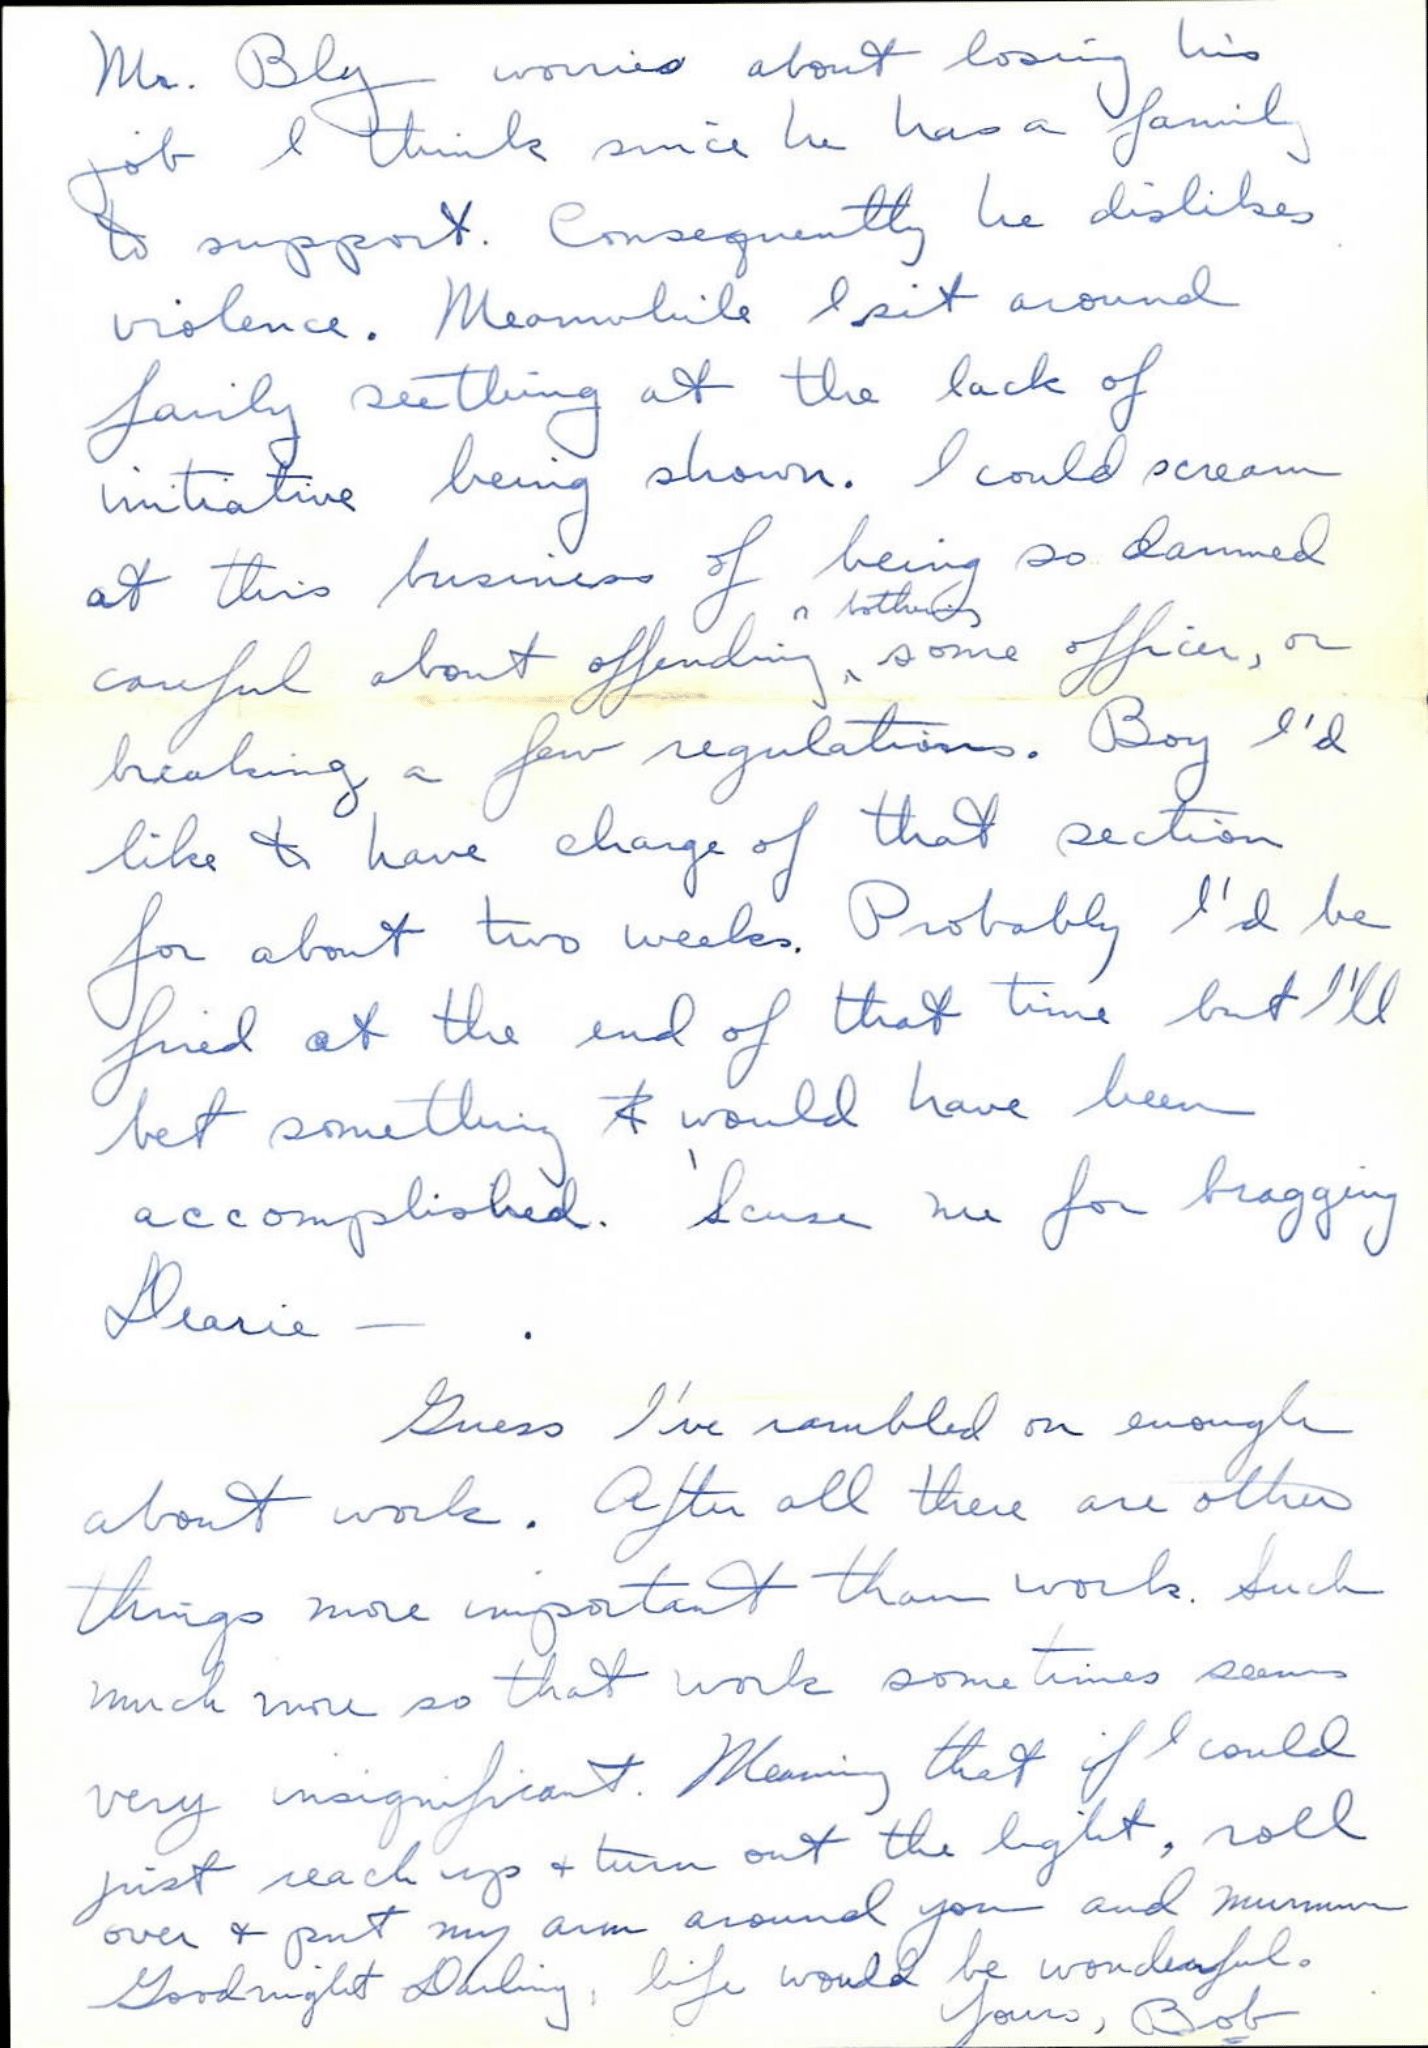 Mr. Bly worries about losing his
job I think since he has a family
to support. Consequently he dislikes
violence. Meanwhile I sit around
fairly seething at the lack of
initiative being shown. I could scream
at this business of being so damned
or bothering
careful about offending some officer, or
breaking a few regulations. Boy I'd
like to have charge of that section
for about two weeks. Probably I'd be
fired at the end of that time but I'll
bet something would have been
accomplished. 'Scuse me for bragging
Dearie — .
Guess I've rambled on enough
about work. After all there are other
things more important than work. Such
much more so that work sometimes seems
very insignificant. Meaning that if I could
just reach up + turn out the light, roll
over + put my arm around you and murmur
Goodnight Darling, life would be wonderful.
Yours, Bob